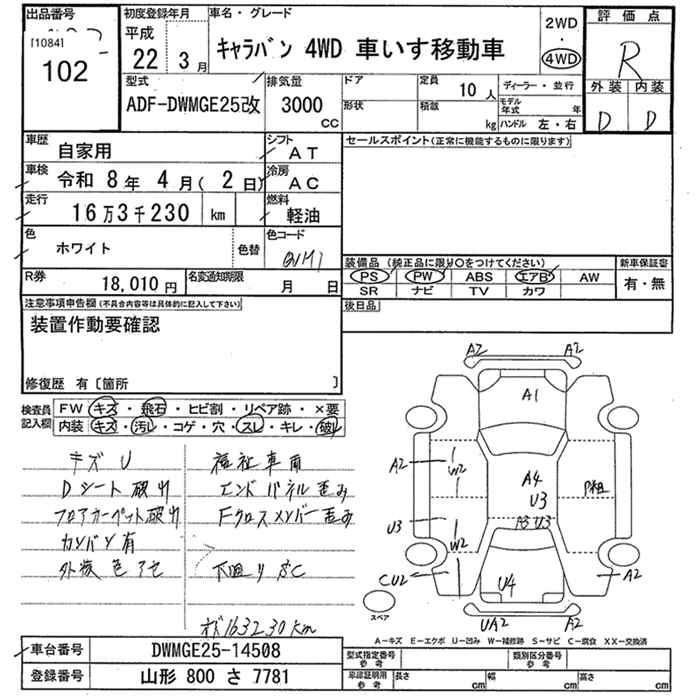 出品番号
[1084]
102
初度登録年月
平成
22 3月
車名・グレード
キャラバン 4WD 車いす移動車
2WD
・
4WD
評価点
R
外装 内装
D D
型式
ADF-DWMGE25改
排気量
3000
CC
ドア
形状
定員
10人
積載
kg
ディーラー・並行
モデル年式 年
ハンドル 左・右
車歴
自家用
シフト
AT
車検
令和 8年 4月(2日)
冷房
AC
走行
16万3千230 km
燃料
軽油
色
ホワイト
色替
色コード
R券
18,010円
名変通知期限
月 日
セールスポイント(正常に機能するものに限ります)
装備品(純正品に限り○をつけてください)
PS PW ABS エアB AW
SR ナビ TV カワ
新車保証書
有・無
後日品
注意事項申告欄(不具合内容等は具体的に記入して下さい)
装置作動要確認
修復歴 有〔箇所 〕
検査員記入欄
FW キズ・飛石・ヒビ割・リペア跡・×要
内装 キズ・汚レ・コゲ・穴・スレ・キレ・破レ
キズU
Dシート破れ
フロアカーペット破れ
カンバン有
外装色アセ
福祉車両
エンドパネル歪み
Fクロスメンバー歪み
下廻りSC
メーター163230km
A2 A2
A1
A2
W2
A4
U3
P粗
U3
W2
A3 U3
CU2
U4
A2
UA2 A2
スペア
A-キズ E-エクボ U-凹み W-補修跡 S-サビ C-腐食 XX-交換済
車台番号
DWMGE25-14508
登録番号
山形 800 さ 7781
型式指定番号
参考
類別区分番号
参考
車庫証明用
参考
長さ cm
幅 cm
高さ cm